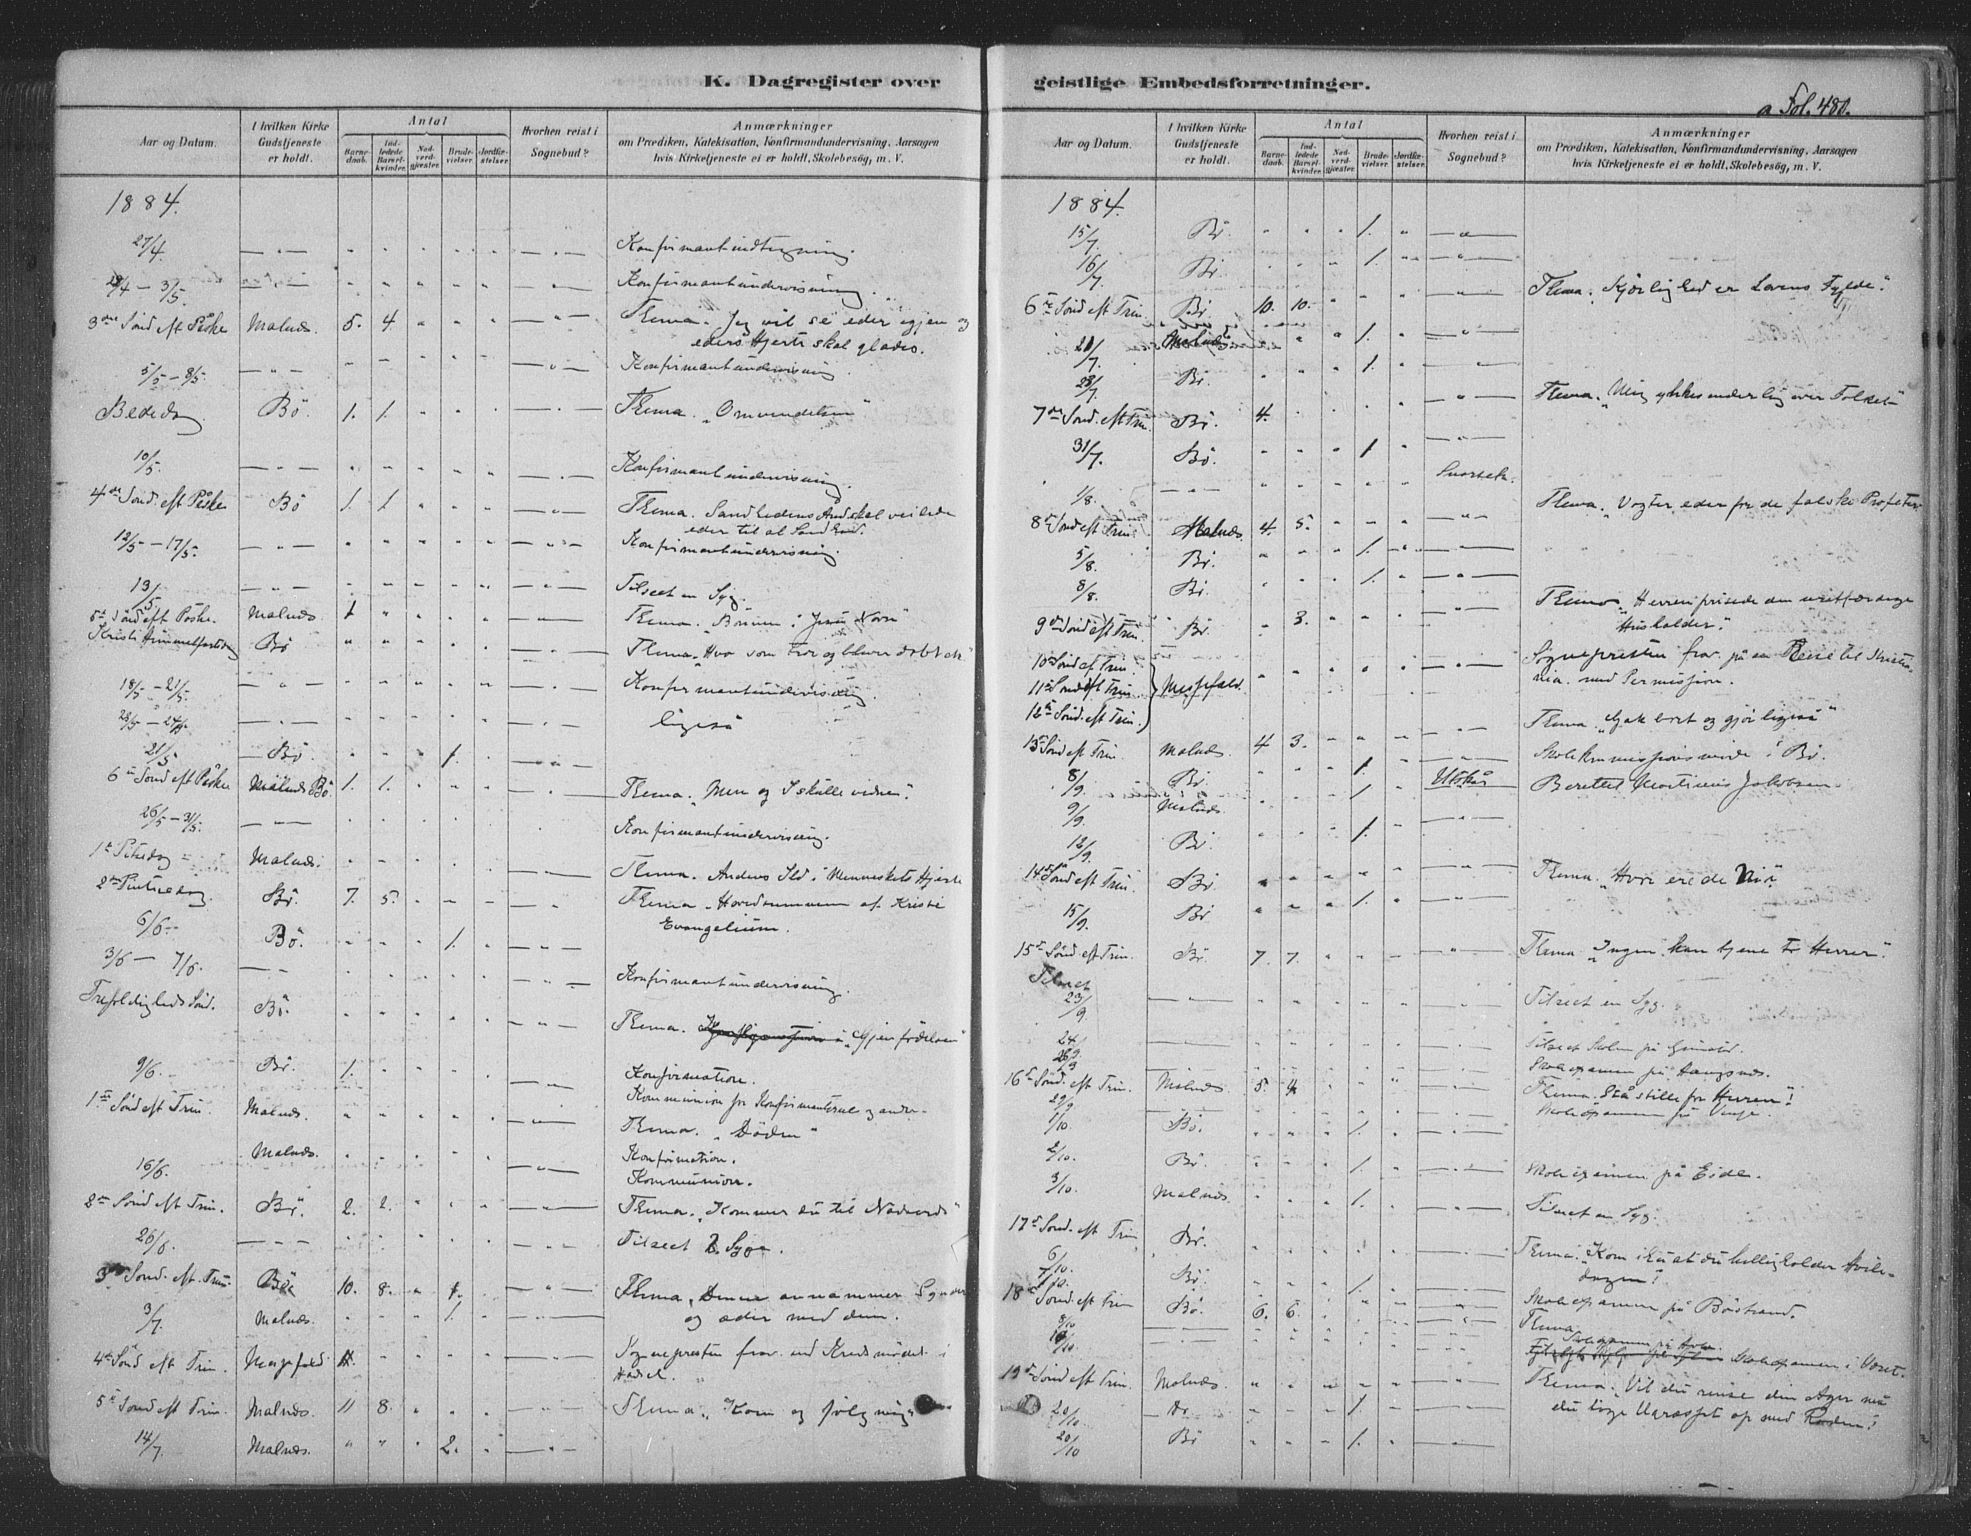 K. Dagregister over
Aar og Datum. I hvilken Kirke Gudstjeneste er holdt. Antal Barne-daab. Ind-ledede Barsel-kvinder. Nad-verd-gjæster. Brude-vielser. Jordfæ-stelser. Hvorhen reist i Sognebud? Anmærkninger
om Prædiken, Katekisation, Konfirmandundervisning, Aarsagen
hvis Kirketjeneste ei er holdt, Skolebesøg, m. V.
1884.
27/4 — " — Konfirmantindtegning.
— 3/5. — " — Konfirmantundervisning.
3die Sønd eft Påske Malnæs. 5. 4. Thema. Jeg vil se eder igjen og
eders Hjerte skal glædes.
5/5 – 8/5. — " — Konfirmantundervisning
Bededag. Bö. 1. 1. Thema. "Omvendelsen"
10/5. Konfirmantundervisning.
4de Sønd. eft Påske Bö 1. 1. Thema. Sandhedens Aand skal veilede
eder til al Sandhed.
12/5 – 17/5. — " — Konfirmantundervisning
13/5 Tilseet en Syg.
5te Sønd eft Påske. Malnæs. 1 Thema. "Bönnen i Jesu Navn
Kristi Himmelfartsdag Bö Thema. "Hvo som tror og bliver döbt
18/5 – 21/5. — " — Konfirmantundervisning
23/5 – 24/5. ligeså
21/5 — Bö. 1.
6te Sønd eft Påske Bö. 1. 1. Thema. "Men og I skulle vidne".
26/5 – 31/5. Konfirmantundervisning.
1ste Malnæs. Thema. Aandens Ild i Menneskets Hjerte
2den Pintsedag Bö. 7. 5. Thema. Hovedsummen af Kristi
Evangelium.
6/6 Bö. 1.
3/6 — 7/6. Konfirmantundervisning.
Trefoldigheds Sönd. Bö. Thema. "Gjenfödelsen"
9/6 Bö. 1. Konfirmation.
Kommunion for Konfirmanterne og andre.
1ste Sönd eft Trin. Malnæs. Thema. "Döden"
16/6. Malnæs. Konfirmation.
Kommunion.
2den Sönd eft Trin. Bö. 2. 2. Thema. "Kommer du til Nadverd"
26/6. Tilseet 2 Syge.
3die Sönd. eft. Trin. Bö 10. 8. 1. Thema. "Denne annammer Syndere
og æder med dem.
3/7. Malnæs. 1.
4de Sönd eft Trin. Messefald Sognepresten frav. ved Kredsmödet i
Hadsel.
5te Sönd eft Trin. Malnæs. 11 8. Thema. "Kom og fölg mig"
14/7. Malnæs. 2.
geistlige Embedsforretninger.
a Fol. 480.
Aar og Datum. I hvilken Kirke Gudstjeneste er holdt. Antal Barne-daab. Ind-ledede Barsel-kvinder. Nad-verd-gjæster. Brude-vielser. Jordfæ-stelser. Hvorhen reist i Sognebud? Anmærkninger
om Prædiken, Katekisation, Konfirmandundervisning, Aarsagen
hvis Kirketjeneste ei er holdt, Skolebesøg, m. V.
1884.
15/7. Bö. 1.
16/7 Bö. 1.
6te Sönd eft Trin. Bö. 10. 10. Thema. "Kjærlighed er Lovens Fylde."
21/7. Malnæs 1.
23/7. Bö. 1.
7de Sönd. eft Trin. Bö. 4. Thema. "Mig ynkes inderlig over Folket"
31/7. Bö. 1
1/8. — " —
8de Sönd eft Trin. Malnæs. 4. 5. Thema. "Vogter eder for de falske Profeter
5/8 Bö. 1.
8/8. Bö. 1.
9de Sönd eft Trin. Bö. 3. Thema. "Herren prisede den uretfærdige
Husholder."
10de Sönd eft Trin.
11te Sönd eft Trin Messefald. Sognepresten frav. på en Reise til Kristia-
nia. med Permission.
12te Sönd. eft Trin.
13de Sönd eft Trin. Malnæs 4 3. Thema. "Gak bort og gjör ligeså"
8/9. Bö. 1. Skolekommissionsmöde i Bö.
9/9. Malnæs 1. Utskår Berettet Martinus Jakobsen
12/9. Bö. 1.
14de Sönd eft Trin. Bö. Thema. "Hvor ere de Ni".
15/9. Bö 1.
15de Sönd eft Trin. Bö. 7. 7. Thema. "Ingen kan tjene to Herrer".
Tilseet
23/9. Tilseet en Syg.
24/9 Tilseet Skolen på
26/9 Skoleexamen på
16de Sönd eft Trin. Malnæs 5. 4. Thema. "Stå stille for Herren"!
29/9 Skoleexamen på Vinje.
1/10. Bö. 1.
2/10. Bö. 1. Skoleexamen på Eide.
3/10. Malnæs. 1. Tilseet en Syg.
17de Sönd. eft Trin Bö. Thema. "Kom ihu at du helligholder Hvile-
dagen"!
6/10
7/10. Bö. 1. Skoleexamen på Böstrand.
18de Sönd eft Trin Bö. 6. 6. Thema
8/10
/10. Skoleexamen i
19de Sönd eft Trin. Malnæs. Thema. "Vil du rense din Ager må
du tage Ugræsset op med Roden"!
20/10 Bö 1.
20/10 Bö 1.